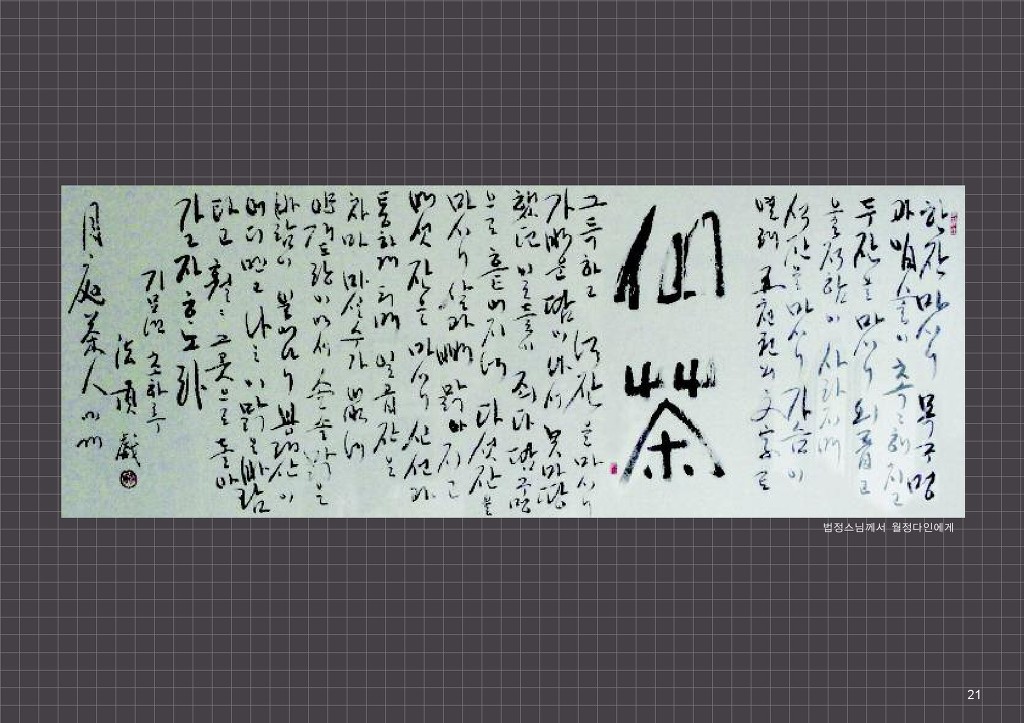 한잔 마시니 목구멍
과 입술이 촉촉해 지고
두잔을 마시니 외롭고
울적함이 사라지며
석잔을 마시니 가슴이
열려 五千권의 文字로
仙茶
그득하고 넉잔을 마시니
가벼운 땀이 나서 못마땅
했던 일들이 죄다 땀구멍
으로 흩어지네 다섯잔을
마시니 살과 뼈 맑아지고
여섯 잔을 마시니 신선과
통하게 되며 일곱 잔은
차마 마실수가 없네
양겨드랑이에서 솔솔 맑은
바람이 불어오니 봉래산이
어디멘고 나는 이 맑은 바람
타고 훨훨 그곳으로 돌아
가고자 하노라
기묘년 초하루
法頂 戱
月庭茶人에게
법정스님께서 월정다인에게
21